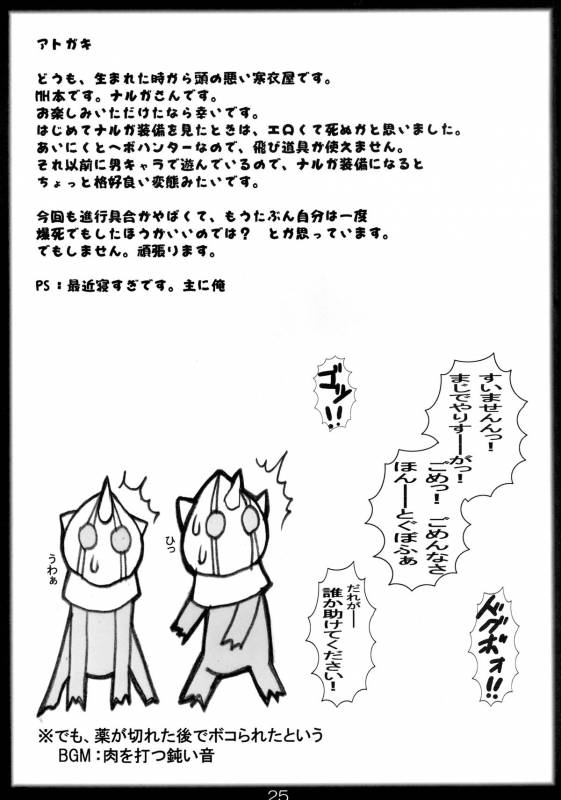 アトガキ
どうも、生まれた時から頭の悪い寒衣屋です。
MH本です。ナルガさんです。
お楽しみいただけたなら幸いです。
はじめてナルガ装備を見たときは、エロくて死ぬかと思いました。
あいにくとヘボハンターなので、飛び道具が使えません。
それ以前に男キャラで遊んでいるので、ナルガ装備になると
ちょっと格好良い変態みたいです。
今回も進行具合がやばくて、もうたぶん自分は一度
爆死でもしたほうがいいのでは？　とか思っています。
でもしません。頑張ります。
PS：最近寝すぎです。主に俺
すいませんんっ！
まじでやりすーーがっ！
ごめっ！　ごめんなさ
ほんーーとぐぼふぁ
ゴッ!!
うわぁ
ひっ
だれがーー
誰か助けてください！
ドグボォ!!
※でも、薬が切れた後でボコられたという
BGM：肉を打つ鈍い音
25